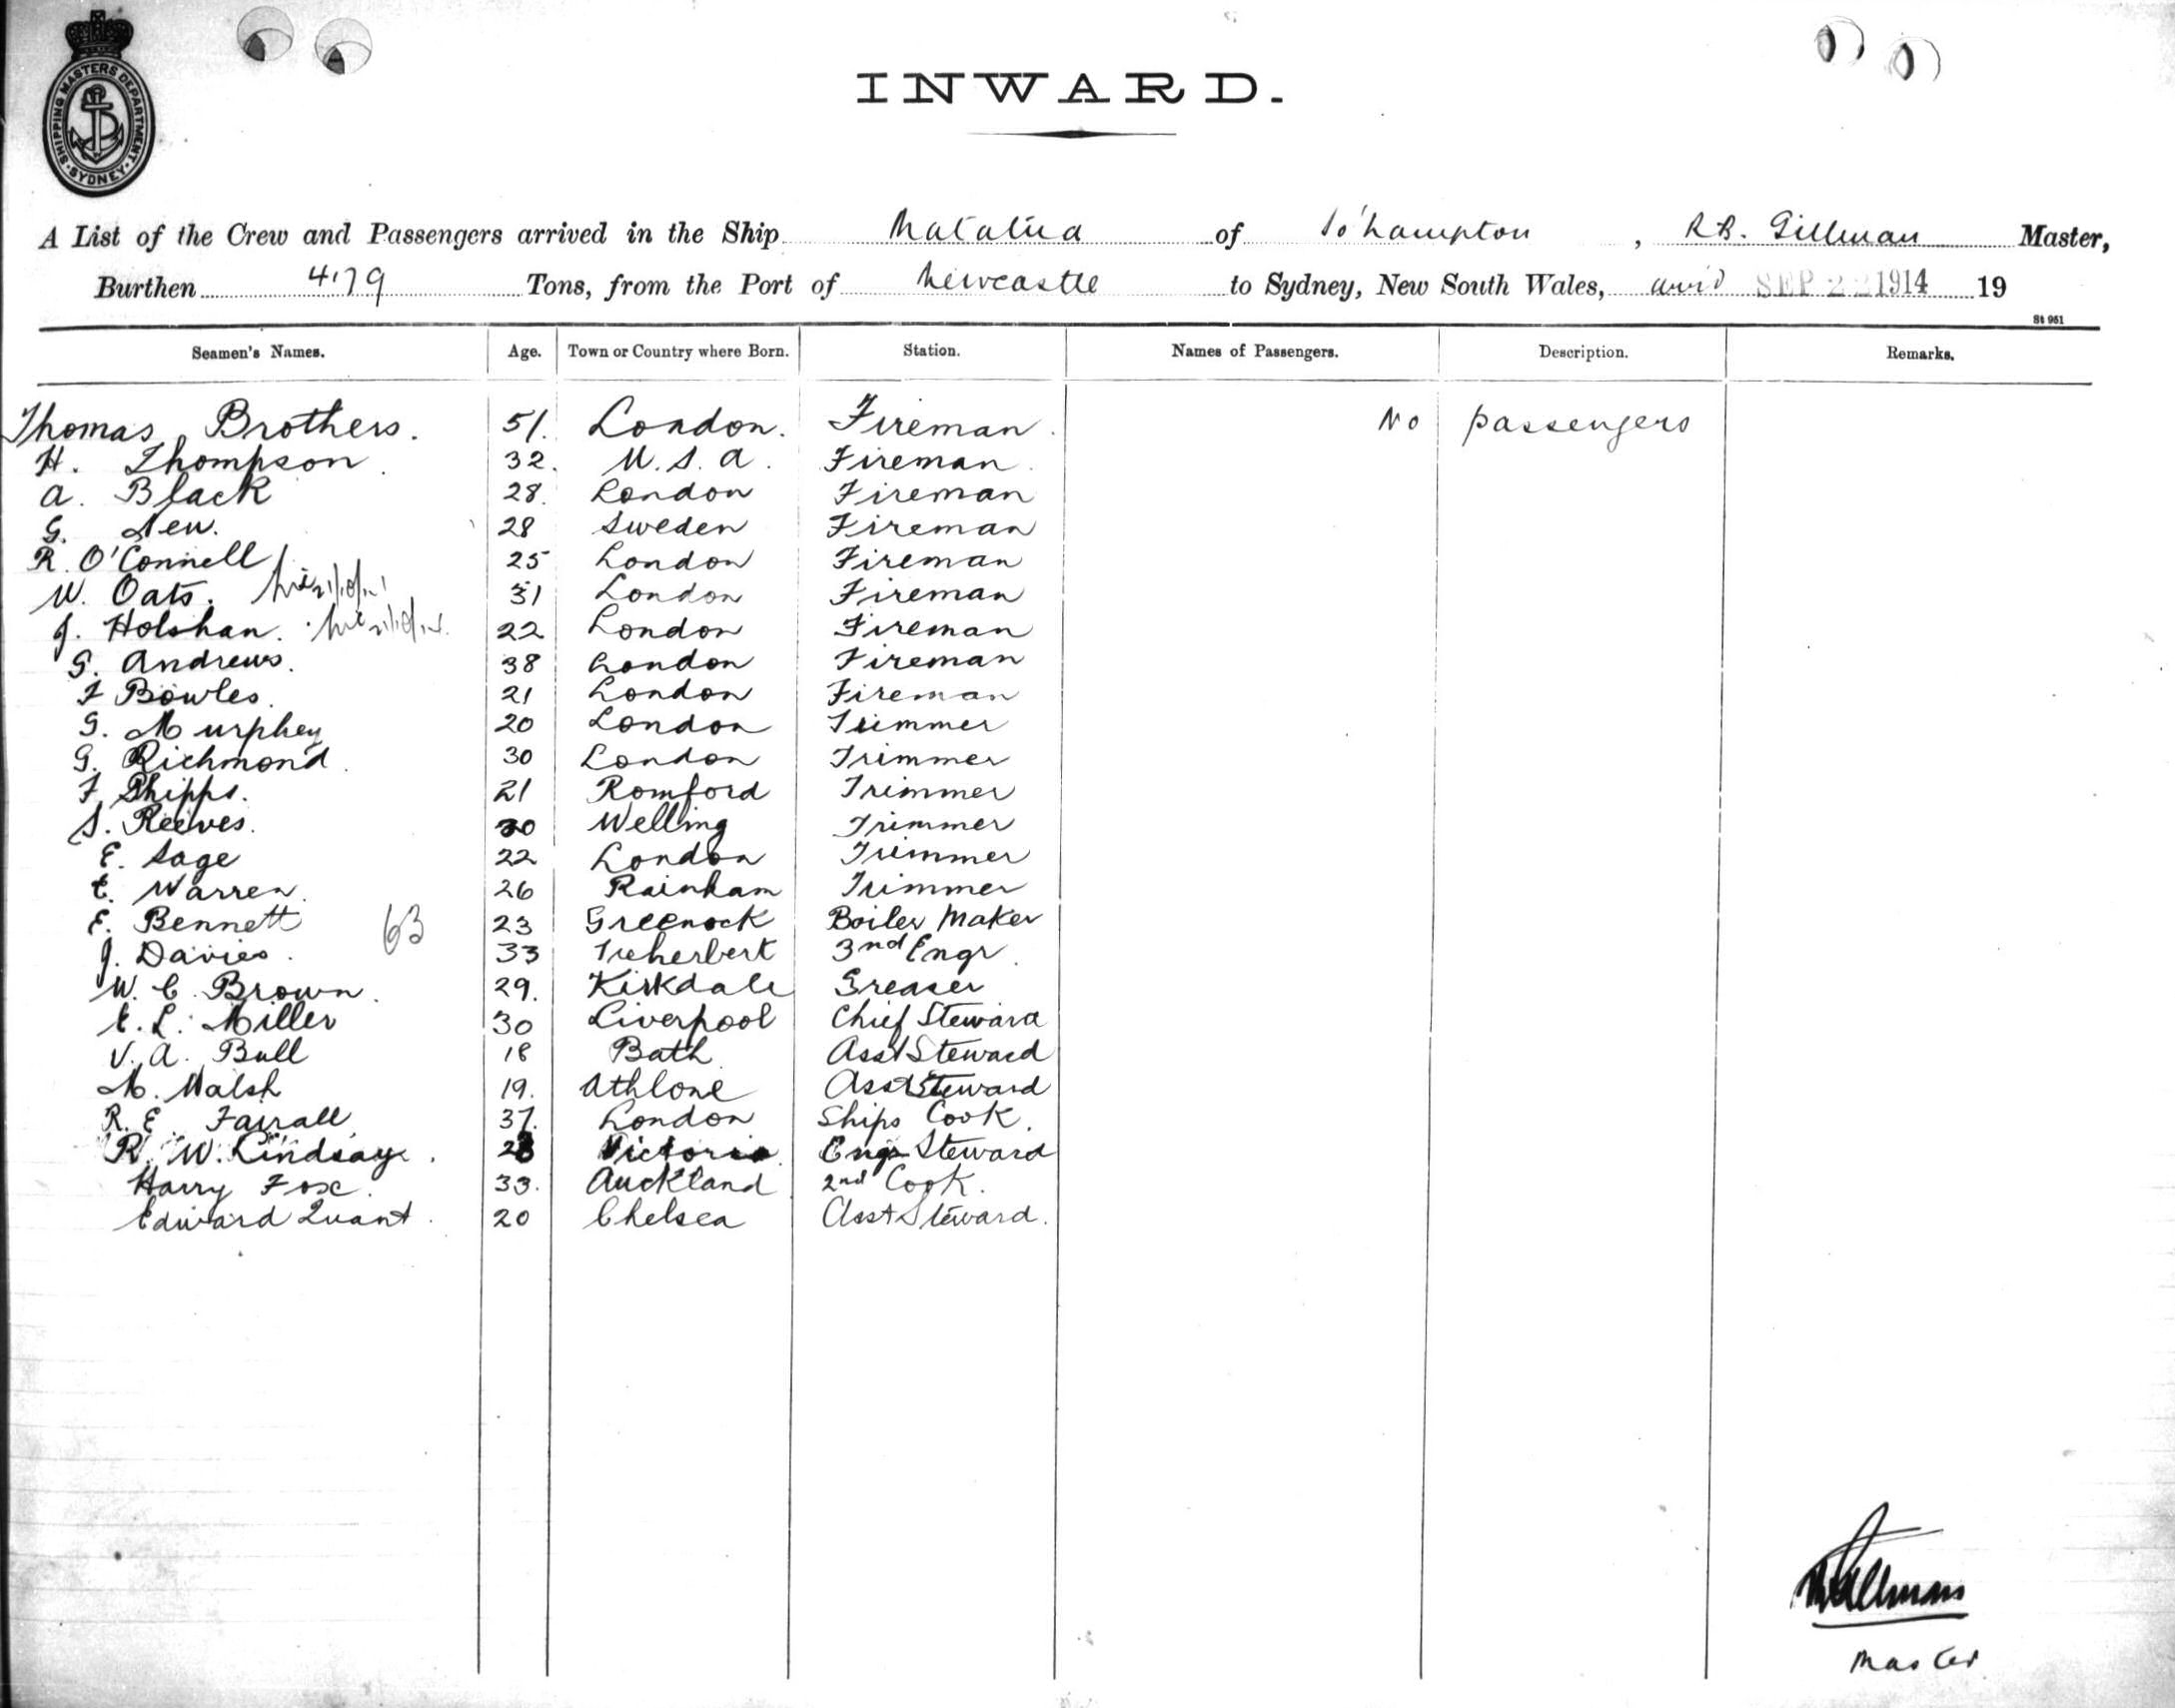 SHIPPING MASTERS DEPARTMENT
SYDNEY
INWARD.
A List of the Crew and Passengers arrived in the Ship Matatua of So'hampton, R.B. Gillman Master,
Burthen 4179 Tons, from the Port of Newcastle to Sydney, New South Wales, arrid SEP 22 1914 19
St 951
Seamen's Names. Age. Town or Country where Born. Station. Names of Passengers. Description. Remarks.
Thomas Brothers. 51. London. Fireman. No passengers
H. Thompson. 32. U.S.A. Fireman.
A. Black 28. London Fireman
G. New. 28 Sweden Fireman
R. O'Connell 25 London Fireman
W. Oats. 31 London Fireman
J. Holshan. 22 London Fireman
G. Andrews. 38 London Fireman
F Bowles. 21 London Fireman
G. Murphey 20 London Trimmer
G. Richmond. 30 London Trimmer
F. Shipps. 21 Romford Trimmer
S. Reeves. 30 Welling Trimmer
E. Sage 22 London Trimmer
E. Warren. 26 Rainham Trimmer
E. Bennett 63 23 Greenock Boiler Maker
J. Davies. 33 Treherbert 3nd Engr.
W. C. Brown. 29. Kirkdale Greaser
E. L. Miller 30 Liverpool Chief Steward
V. A. Bull 18 Bath Asst Steward
M. Walsh 19. Athlone Asst Steward
R. E. Fairall 37. London Ships Cook.
R. W. Lindsay. 28 Victoria. Engr Steward
Harry Fox. 33. Auckland 2nd Cook.
Edward Quant. 20 Chelsea Asst Steward.
Gillman
Master